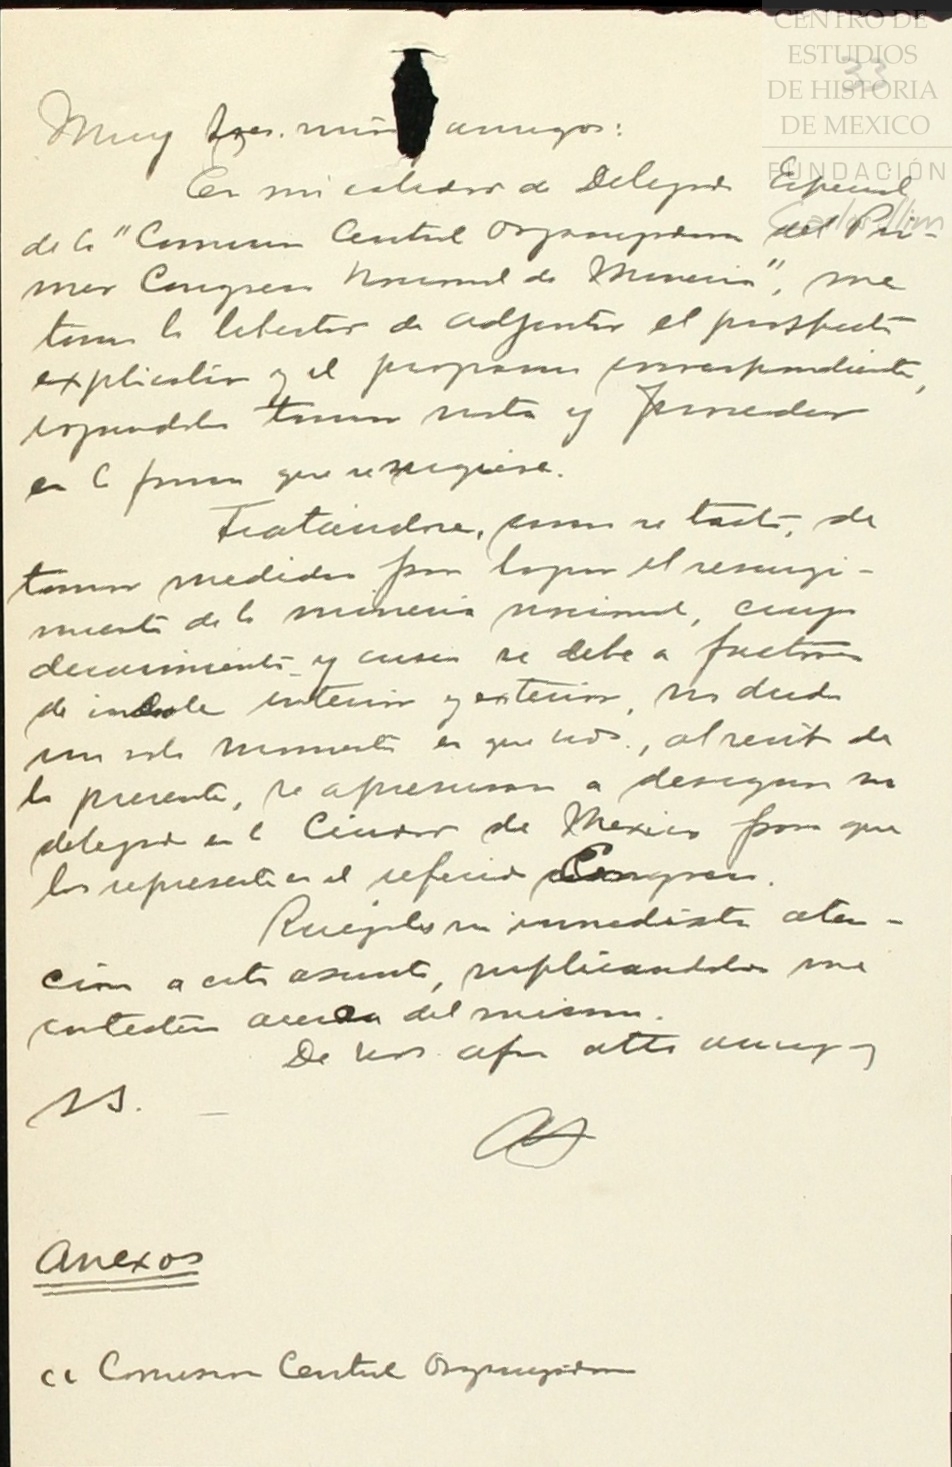 CENTRO DE
ESTUDIOS
DE HISTORIA
DE MEXICO
FUNDACIÓN
33
Muy Sres. míos y amigos:
En mi calidad de Delegado Especial
de la "Comision Central Organizadora del Pri-
mer Congreso Nacional de Mineria", me
tomo la libertad de adjuntar el prospecto
explicativo y el programa correspondiente,
tomar nota y proceder
en la forma que se requiere.
Tratándose, como se trata, de
tomar medidas para lograr el resurgi-
miento de la mineria nacional, cuyo
decaimiento y crisis se debe a factores
de indole interior y exterior, no dudo
un solo momento en que Uds., al recibo de
la presente, se apresuraran a designar su
delegado en la Ciudad de Mexico para que
los represente en el referido Congreso.
Ruégoles su inmediata aten-
ción a este asunto, suplicandoles me
contesten acerca del mismo.
De Uds. afmo atto amigo y
SS.
Anexos
cc Comision Central Organizadora